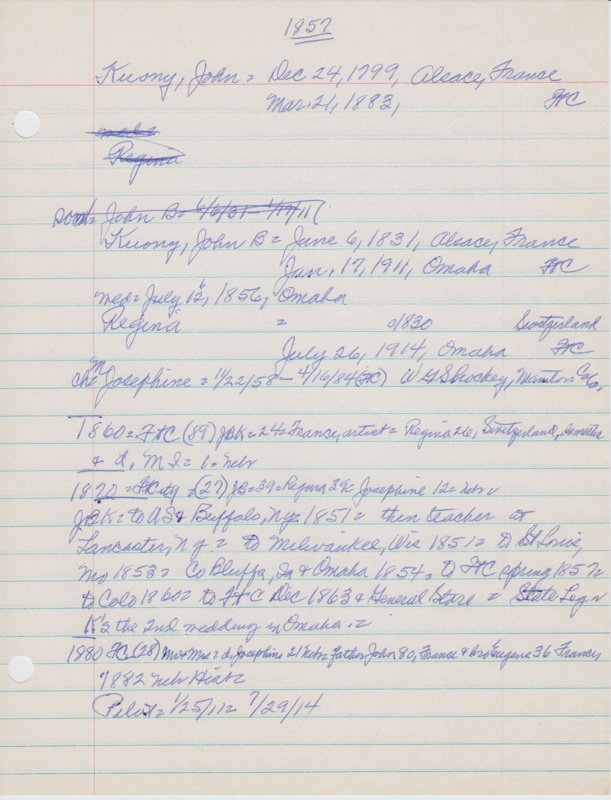 1857
Kuony, John = Dec 24, 1799, Alsace, France
Mar. 21, 1883, FtC
med =
Regina
John B = 6/6/31 - 1/17/11
Kuony, John B = June 6, 1831, Alsace, France
Jan. 17, 1911, Omaha FtC
med = July 12, 1856, Omaha
Regina = 1830 Switzerland
July 26, 1914, Omaha FtC
ch = M Josephine = 1/22/58 - 4/16/84 (FtC) W H Stuckey, Co.
1860 = FtC (89) JBK = 24 = France, artist = Regina 26, Switzerland,
& d, M J = 1 = Nebr
1870 = FtC (27) JB = 39 = Regina 39 = Josephine 12 = Nebr =
JBK = to US & Buffalo, Ny = 1851 = then teacher at
Lancaster, Ny = to Milwaukee, Wis 1851 = to St Louis,
Mo 1853 = Co Bluffs, Ia & Omaha 1854, to FtC spring 1857 =
to Colo 1860 = to FtC Dec 1863 & General Store = State Leg =
K's the 2nd wedding in Omaha =
1880 FC, (28) Mr & Mrs = d, Josephine 21 Nebr = father John 80, France & bro Eugene 36 France,
1882 Nebr Hist =
Pilot = 1/25/11 = 7/29/14